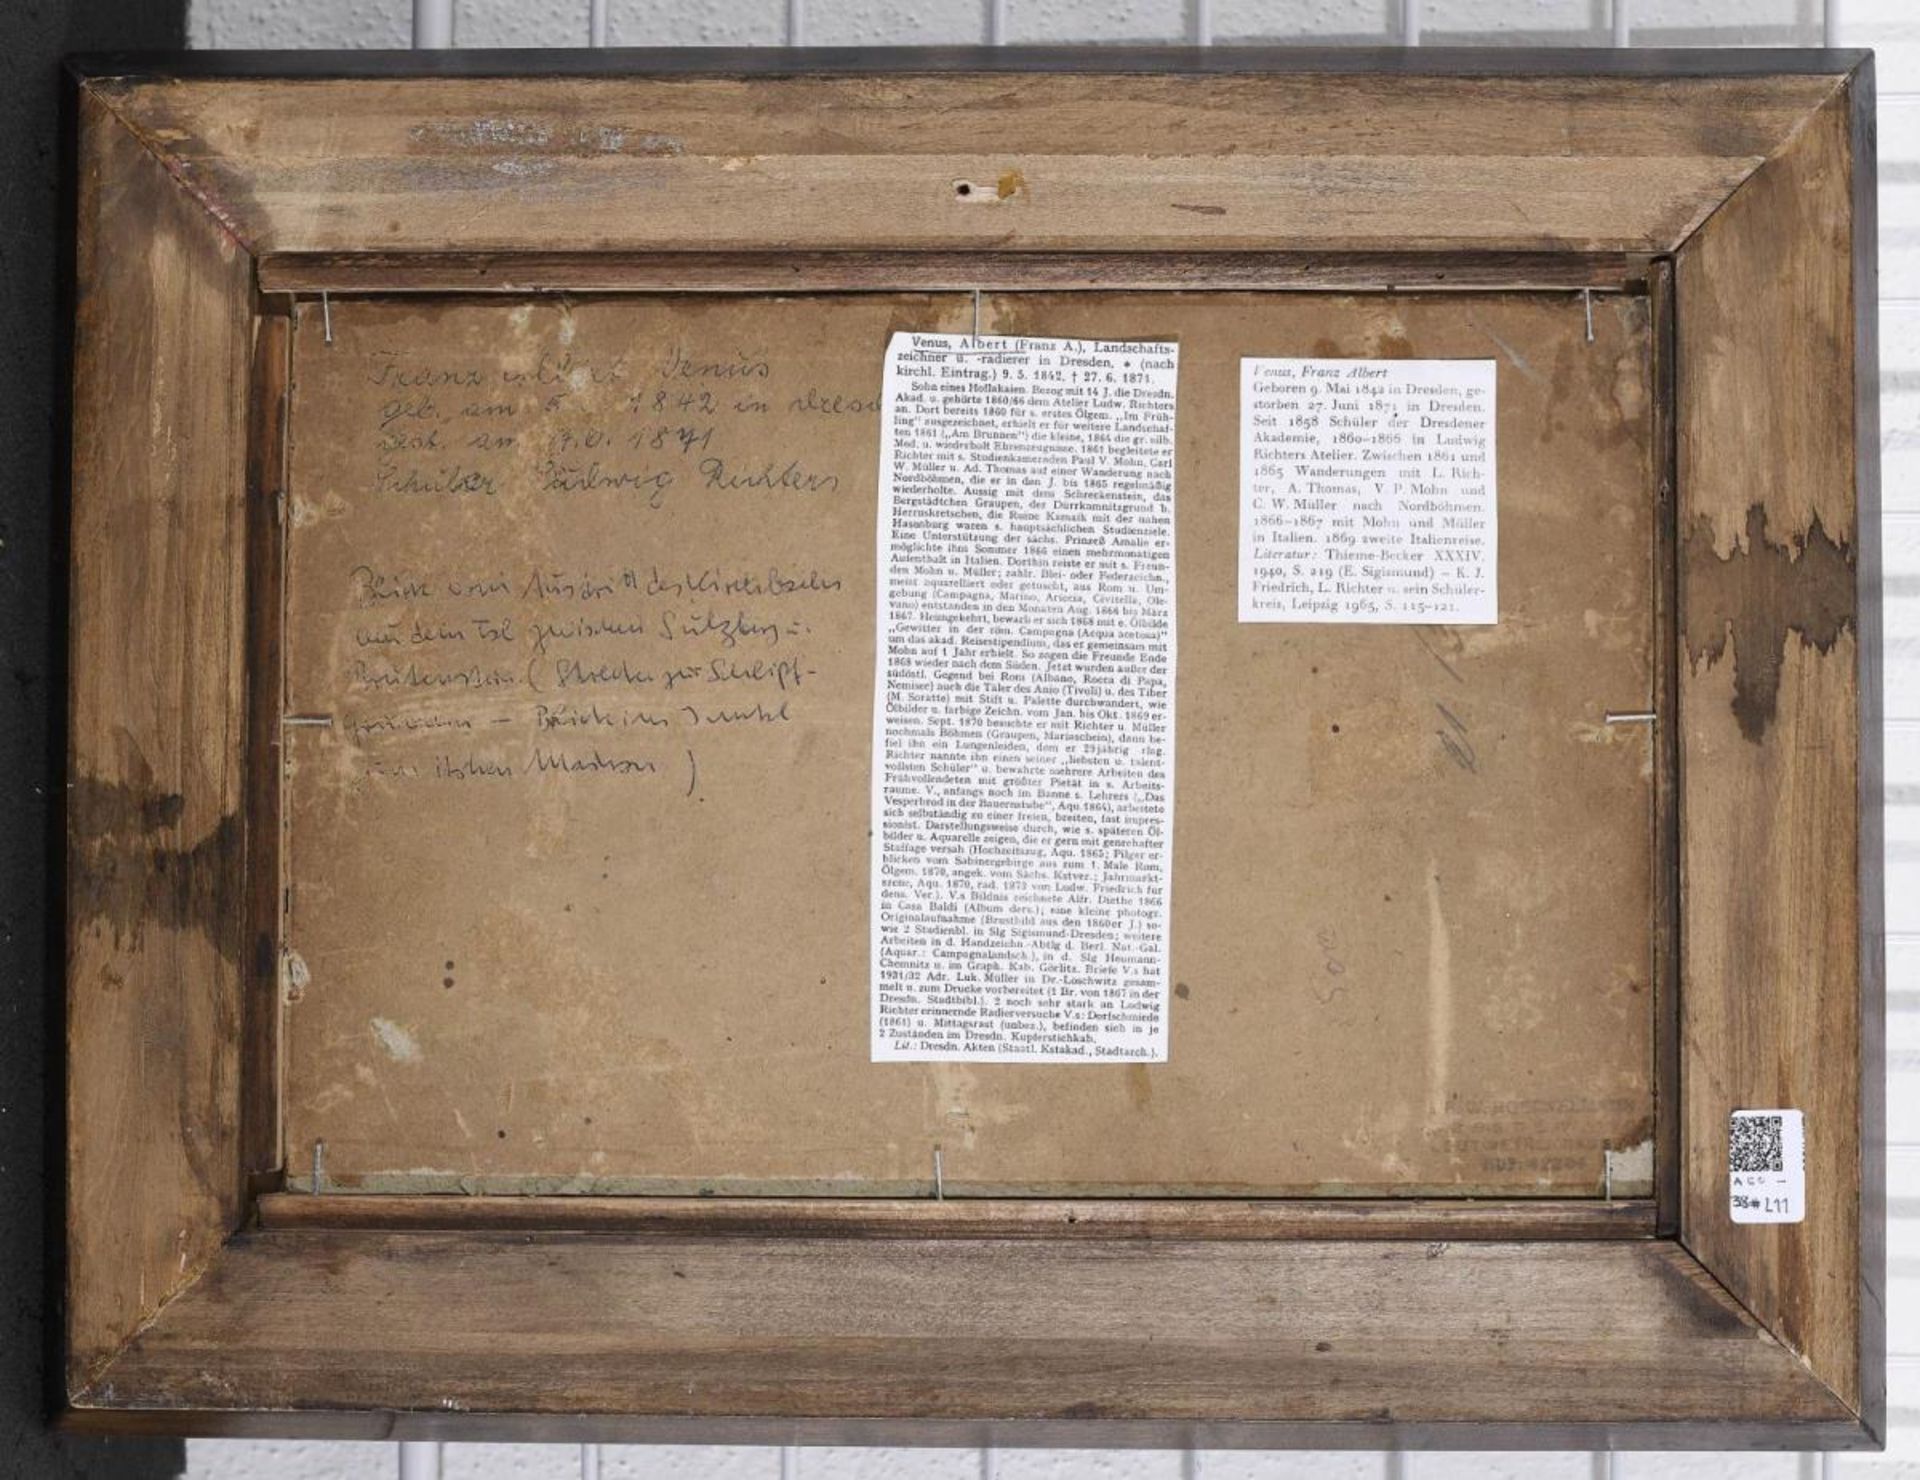 Franz Albert Venus
geb. am 5. 1842 in
gest. am 1871
Schüler Ludwig Richters
Blick vom
aus dem zwischen u.
( Strecke zur
— Blick ins
zum Hohen )
Venus, Albert (Franz A.), Landschafts-
zeichner u. -radierer in Dresden, * (nach
kirchl. Eintrag.) 9. 5. 1842, † 27. 6. 1871.
Sohn eines Hoflakaien. Bezog mit 14 J. die Dresdn.
Akad. u. gehörte 1860/66 dem Atelier Ludw. Richters
an. Dort bereits 1860 für s. erstes Ölgem. „Im Früh-
ling“ ausgezeichnet, erhielt er für weitere Landschaf-
ten 1861 („Am Brunnen“) die kleine, 1864 die gr. silb.
Med. u. wiederholt Ehrenzeugnisse. 1861 begleitete er
Richter mit s. Studienkameraden Paul V. Mohn, Carl
W. Müller u. Ad. Thomas auf einer Wanderung nach
Nordböhmen, die er in den J. bis 1865 regelmäßig
wiederholte. Aussig mit dem Schreckenstein, das
Bergstädtchen Graupen, der Dürrkamnitzgrund b.
Herrnskretschen, die Ruine Kamaik mit der nahen
Hasenburg waren s. hauptsächlichen Studienziele.
Eine Unterstützung der sächs. Prinzeß Amalie er-
möglichte ihm Sommer 1866 einen mehrmonatigen
Aufenthalt in Italien. Dorthin reiste er mit s. Freun-
den Mohn u. Müller; zahlr. Blei- oder Federzeichn.,
meist aquarelliert oder getuscht, aus Rom u. Um-
gebung (Campagna, Marino, Ariccia, Civitella, Ole-
vano) entstanden in den Monaten Aug. 1866 bis März
1867. Heimgekehrt, bewarb er sich 1868 mit e. Ölbilde
„Gewitter in der röm. Campagna (Acqua acetosa)“
um das akad. Reisestipendium, das er gemeinsam mit
Mohn auf 1 Jahr erhielt. So zogen die Freunde Ende
1868 wieder nach dem Süden. Jetzt wurden außer der
südöstl. Gegend bei Rom (Albano, Rocca di Papa,
Nemisee) auch die Täler des Anio (Tivoli) u. des Tiber
(M. Soratte) mit Stift u. Palette durchwandert, wie
Ölbilder u. farbige Zeichn. vom Jan. bis Okt. 1869 er-
weisen. Sept. 1870 besuchte er mit Richter u. Müller
nochmals Böhmen (Graupen, Mariaschein), dann be-
fiel ihn ein Lungenleiden, dem er 29jährig erlag.
Richter nannte ihn einen seiner „liebsten u. talent-
vollsten Schüler“ u. bewahrte mehrere Arbeiten des
Frühvollendeten mit größter Pietät in s. Arbeits-
raume. V., anfangs noch im Banne s. Lehrers („Das
Vesperbrod in der Bauernstube“, Aqu. 1864), arbeitete
sich selbständig zu einer freien, breiten, fast impres-
sionist. Darstellungsweise durch, wie s. späteren Öl-
bilder u. Aquarelle zeigen, die er gern mit genrehafter
Staffage versah (Hochzeitszug, Aqu. 1865; Pilger er-
blicken vom Sabinergebirge aus zum 1. Male Rom,
Ölgem. 1870, angek. vom Sächs. Kstver.; Jahrmarkt-
szene, Aqu. 1870, rad. 1873 von Ludw. Friedrich für
dens. Ver.). V.s Bildnis zeichnete Alfr. Diethe 1866
in Casa Baldi (Album ders.); eine kleine photogr.
Originalaufnahme (Brustbild aus den 1860er J.) so-
wie 2 Studienbl. in Slg Sigismund-Dresden; weitere
Arbeiten in d. Handzeichn.-Abtlg d. Berl. Nat.-Gal.
(Aquar.: Campagnalandsch.), in d. Slg Heumann-
Chemnitz u. im Graph. Kab. Görlitz. Briefe V.s hat
1931/32 Adr. Luk. Müller in Dr.-Loschwitz gesam-
melt u. zum Drucke vorbereitet (1 Br. von 1867 in der
Dresdn. Stadtbibl.). 2 noch sehr stark an Ludwig
Richter erinnernde Radierversuche V.s: Dorfschmiede
(1861) u. Mittagsrast (unbez.), befinden sich in je
2 Zuständen im Dresdn. Kupferstichkab.
Lit.: Dresdn. Akten (Staatl. Kstakad., Stadtarch.).
Venus, Franz Albert
Geboren 9. Mai 1842 in Dresden, ge-
storben 27. Juni 1871 in Dresden.
Seit 1858 Schüler der Dresdener
Akademie, 1860–1866 in Ludwig
Richters Atelier. Zwischen 1861 und
1865 Wanderungen mit L. Rich-
ter, A. Thomas, V. P. Mohn und
C. W. Müller nach Nordböhmen.
1866–1867 mit Mohn und Müller
in Italien. 1869 zweite Italienreise.
Literatur: Thieme-Becker XXXIV.
1940, S. 219 (E. Sigismund) – K. J.
Friedrich, L. Richter u. sein Schüler-
kreis, Leipzig 1965, S. 115–121.
38# L11